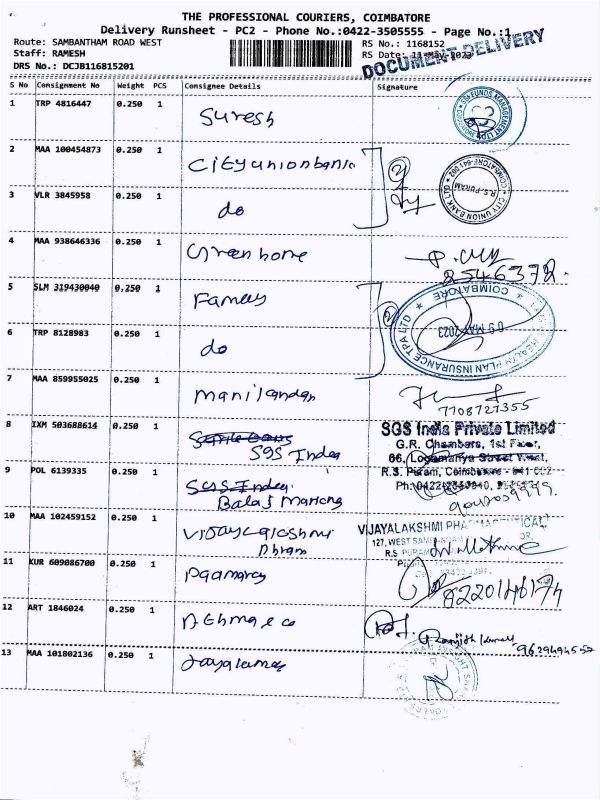 THE PROFESSIONAL COURIERS, COIMBATORE
Delivery Runsheet - PC2 - Phone No.:0422-3505555 - Page No.:1
Route: SAMBANTHAM ROAD WEST
RS No.: 1168152
Staff: RAMESH
RS Date: 11-May-2023
DOCUMENT DELIVERY
DRS No.: DCJB116815201
S No Consignment No Weight PCS Consignee Details Signature
1 TRP 4816447 0.250 1 Suresh
SBI FUNDS MANAGEMENT
2 MAA 100454873 0.250 1 Cityunionbank
CITY UNION BANK
R.S. PURAM
COIMBATORE-641 002
3 VLR 3845958 0.250 1 do
4 MAA 938646336 0.250 1 Greenhome
5 SLM 319430040 0.250 1
COIMBATORE
MAY 2023
HEALTH PLAN INSURANCE TPA LTD
6 TRP 8128983 0.250 1 do
7 MAA 859955025 0.250 1 Manikandan
7708727355
8 IXM 503688614 0.250 1 SGS India
SGS India Private Limited
G.R. Chambers, 1st Floor,
66, Logamanya Street West,
R.S. Puram, Coimbatore - 641 002
9 POL 6139335 0.250 1 Balaji
10 MAA 102459152 0.250 1 Vijayalakshmi
VIJAYALAKSHMI PHARMACEUTICAL
127, WEST
R.S. PURAM
11 KUR 609086700 0.250 1
8220146174
12 ART 1846024 0.250 1
Ranjith Kumar
9629494552
13 MAA 101802136 0.250 1 Jayakumar